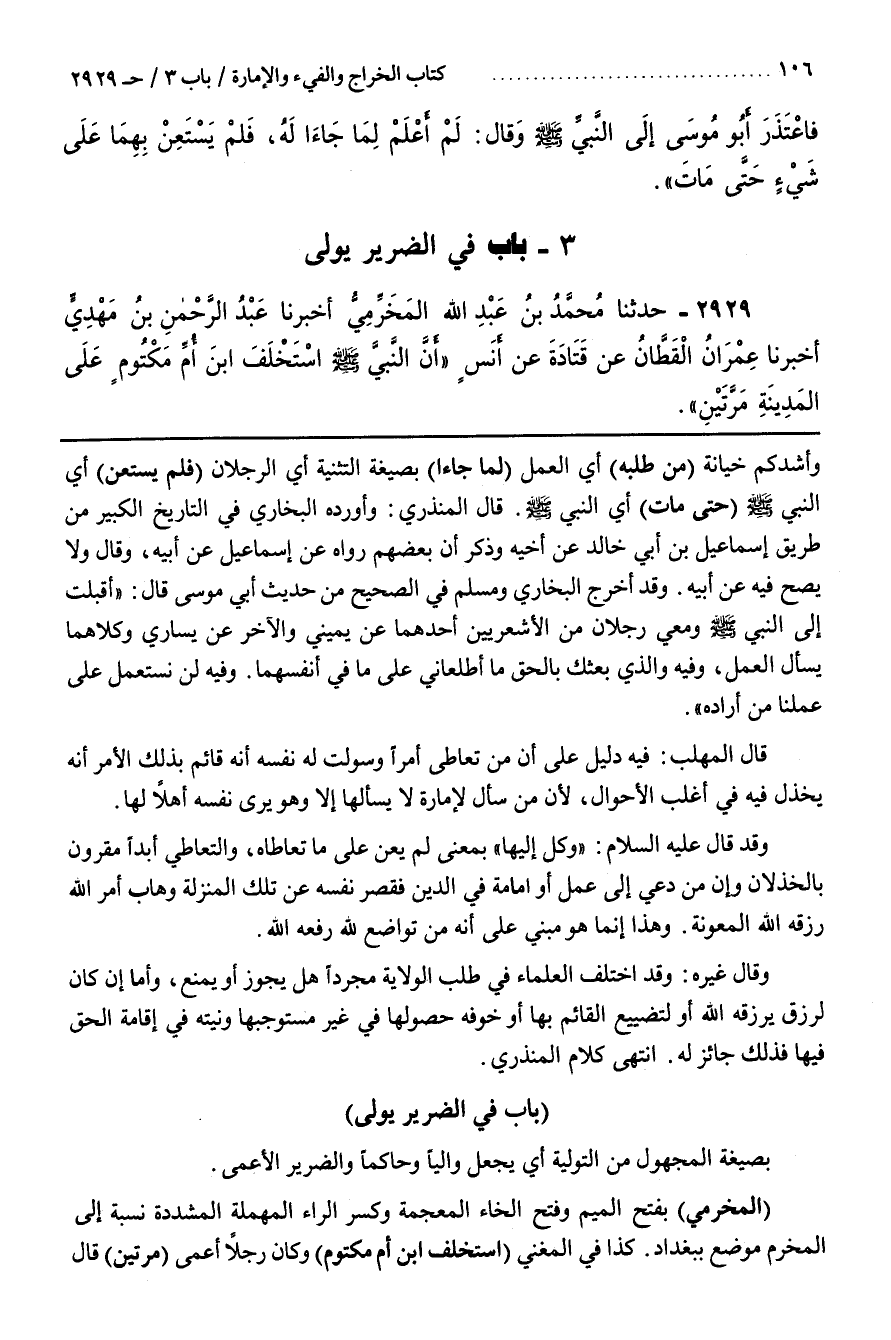 ١٠٦ ................................ كتاب الخراج والفيء والإمارة / باب ٣ / حـ ٢٩٢٩
فاعْتَذَرَ أَبُو مُوسَى إلَى النَّبيِّ ﷺ وَقال: لَمْ أَعْلَمْ لِمَا جَاءَا لَهُ، فَلمْ يَسْتَعِنْ بِهِمَا عَلَى
شَيْءٍ حَتَّى مَاتَ».
٣ ـ باب في الضرير يولى
٢٩٢٩ ـ حدثنا مُحمَّدُ بنُ عَبْدِ الله المَخَرِّمِيُّ أخبرنا عَبْدُ الرَّحْمٰنِ بنُ مَهْدِيٍّ
أخبرنا عِمْرَانُ الْقَطَّانُ عن قَتَادَةَ عن أَنَسٍ «أَنَّ النَّبيَّ ﷺ اسْتَخْلَفَ ابنَ أُمِّ مَكْتُومٍ عَلَى
المَدِينَةِ مَرَّتَيْنِ».
وأشدكم خيانة (من طلبه) أي العمل (لما جاءا) بصيغة التثنية أي الرجلان (فلم يستعن) أي
النبي ﷺ (حتى مات) أي النبي ﷺ. قال المنذري: وأورده البخاري في التاريخ الكبير من
طريق إسماعيل بن أبي خالد عن أخيه وذكر أن بعضهم رواه عن إسماعيل عن أبيه، وقال ولا
يصح فيه عن أبيه. وقد أخرج البخاري ومسلم في الصحيح من حديث أبي موسى قال: «أقبلت
إلى النبي ﷺ ومعي رجلان من الأشعريين أحدهما عن يميني والآخر عن يساري وكلاهما
يسأل العمل، وفيه والذي بعثك بالحق ما أطلعاني على ما في أنفسهما. وفيه لن نستعمل على
عملنا من أراده».
قال المهلب: فيه دليل على أن من تعاطى أمراً وسولت له نفسه أنه قائم بذلك الأمر أنه
يخذل فيه في أغلب الأحوال، لأن من سأل لإمارة لا يسألها إلا وهو يرى نفسه أهلاً لها.
وقد قال عليه السلام: «وكل إليها» بمعنى لم يعن على ما تعاطاه، والتعاطي أبداً مقرون
بالخذلان وإن من دعي إلى عمل أو امامة في الدين فقصر نفسه عن تلك المنزلة وهاب أمر الله
رزقه الله المعونة. وهذا إنما هو مبني على أنه من تواضع لله رفعه الله.
وقال غيره: وقد اختلف العلماء في طلب الولاية مجرداً هل يجوز أو يمنع، وأما إن كان
لرزق يرزقه الله أو لتضييع القائم بها أو خوفه حصولها في غير مستوجبها ونيته في إقامة الحق
فيها فذلك جائز له. انتهى كلام المنذري.
(باب في الضرير يولى)
بصيغة المجهول من التولية أي يجعل والياً وحاكماً والضرير الأعمى.
(المخرمي) بفتح الميم وفتح الخاء المعجمة وكسر الراء المهملة المشددة نسبة إلى
المخرم موضع ببغداد. كذا في المغني (استخلف ابن أم مكتوم) وكان رجلاً أعمى (مرتين) قال